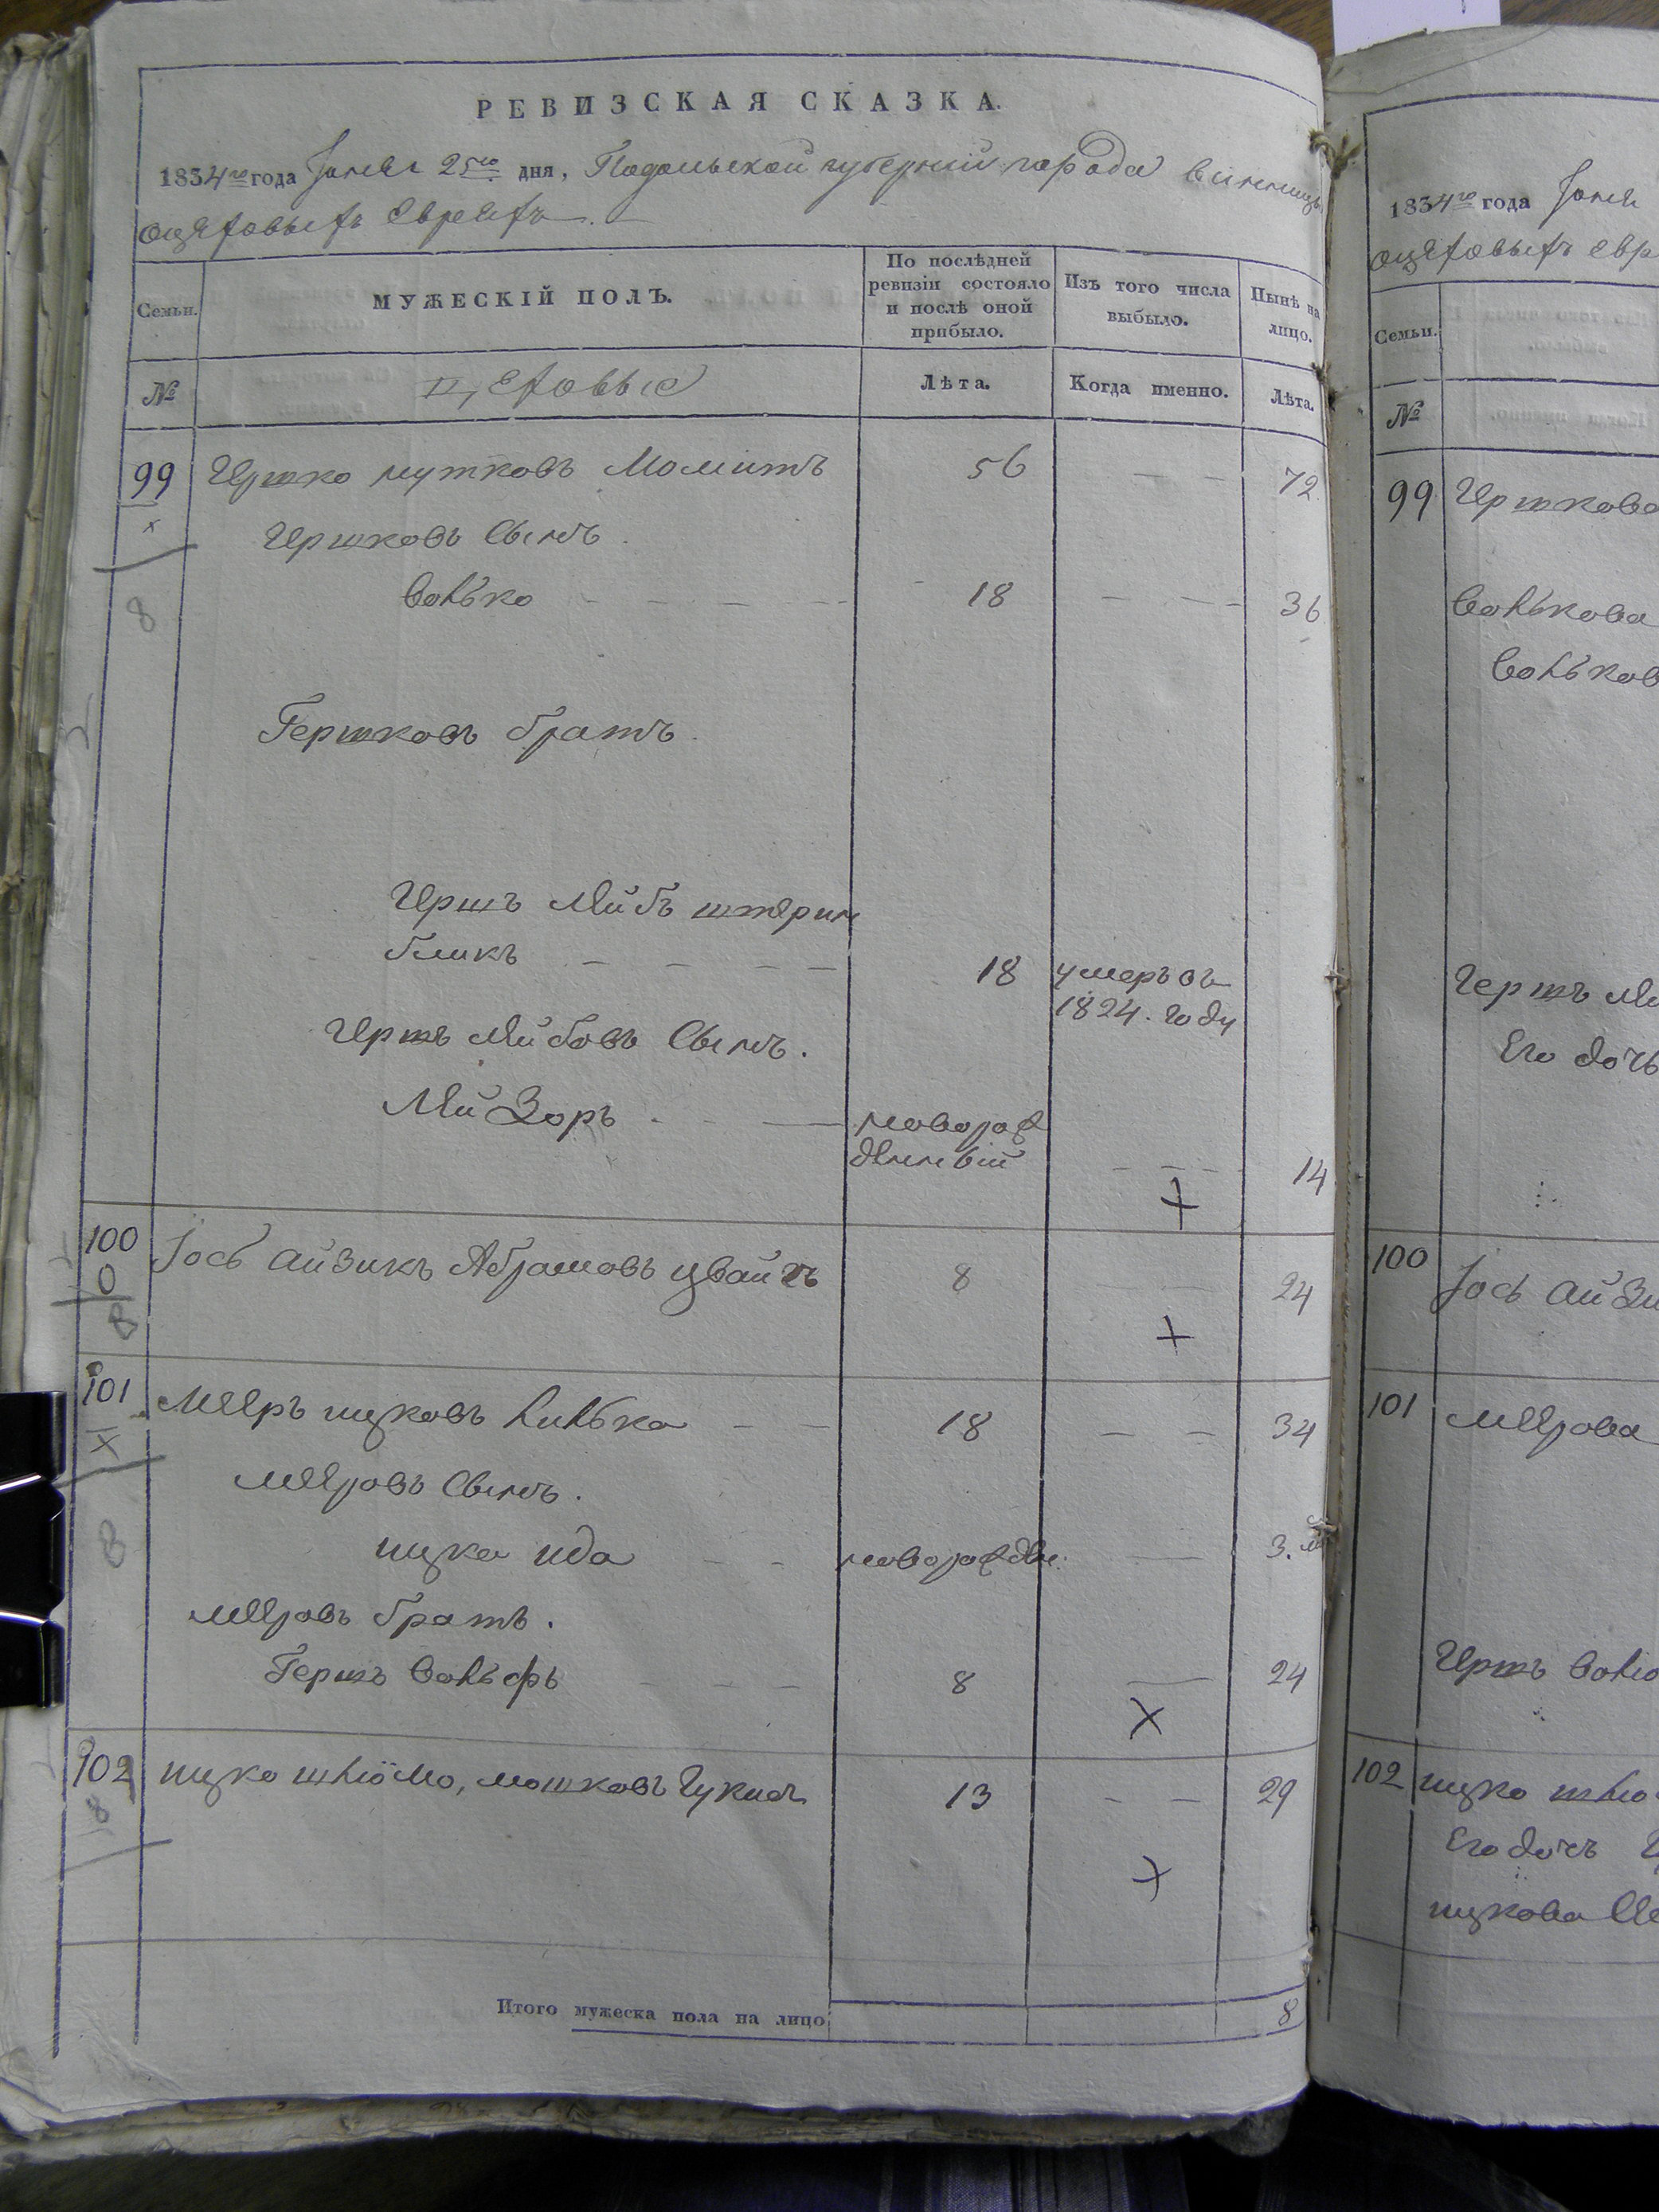 РЕВИЗСКАЯ СКАЗКА.
1834го года Іюня 25го дня, Подольской губерніи города Винницы
о цеховыхъ Евреяхъ.
Семьи.
МУЖЕСКІЙ ПОЛЪ.
По послѣдней ревизіи состояло и послѣ оной прибыло.
Изъ того числа выбыло.
Нынѣ на лицо.
№
Цеховые
Лѣта.
Когда именно.
Лѣта.
99 Гершко Мошковъ 56 — — 72
Гершковъ Сынъ.
Волько — — — — 18 — — — 36
8
Гершковъ братъ.
Гершъ Лейбъ Штерин
бликъ — — — — 18 умеръ въ
1824. году
Гершъ Лейбовъ Сынъ.
Лейзоръ новорож
денный — — — 14
100 Іось Айзикъ Абрамовъ 8 24
101 Мееръ Ицковъ 18 — — 34
Мееровъ Сынъ.
Ицко новорожден. 3.
Мееровъ братъ.
Гершъ Вольфъ — — — 8 — 24
102 Ицко Шлiомо, Мошковъ 13 — — 29
Итого мужеска пола на лицо 8
1834го года Іюня
о цеховыхъ Евр
Семьи.
№
99 Гершкова
Волькова
Вольков
Гершъ Ле
Его дочь
100 Іось Айзи
101 Меерова
ГершъВолю
102 Ицко Шлю
Его дочь
Ицкова